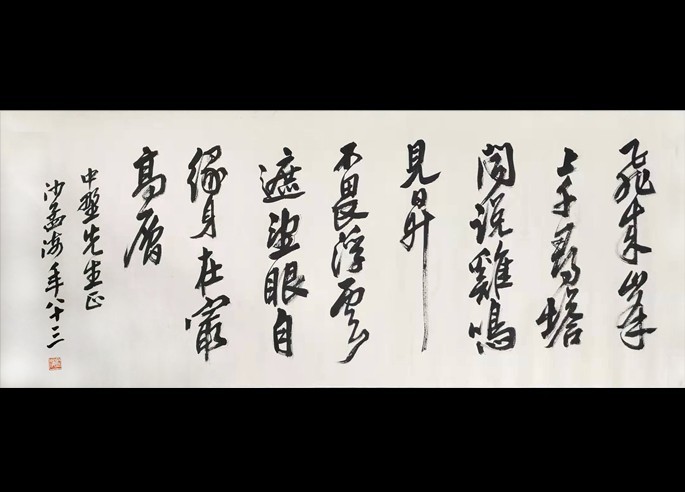 飛來峯
上千尋塔
聞說雞鳴
見日升
不畏浮雲
遮望眼自
緣身在最
高層
中野先生正
沙孟海年八十三